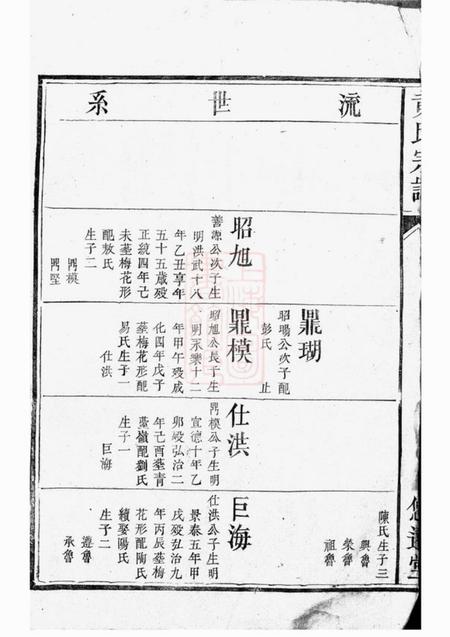 流世系
陳氏生子三
興魯
榮魯
祖魯
鼎瑚
昭瑒公次子配
彭氏 止
昭旭
善源公次子生
明洪武十八
年乙丑享年
五十五歲歿
正統四年己
未葬梅花形
配敖氏
生子二
鼎模
鼎堅
鼎模
昭旭公長子生
明永樂十二
年甲午歿成
化四年戊子
葬梅花形配
易氏生子一
仕洪
仕洪
鼎模公子生明
宣德十年乙
卯歿弘治二
年己酉葬青
蓝嶺配劉氏
生子一
巨海
巨海
仕洪公子生明
景泰五年甲
戌歿弘治九
年丙辰葬梅
花形配陶氏
續娶陽氏
生子二
遵魯
承魯